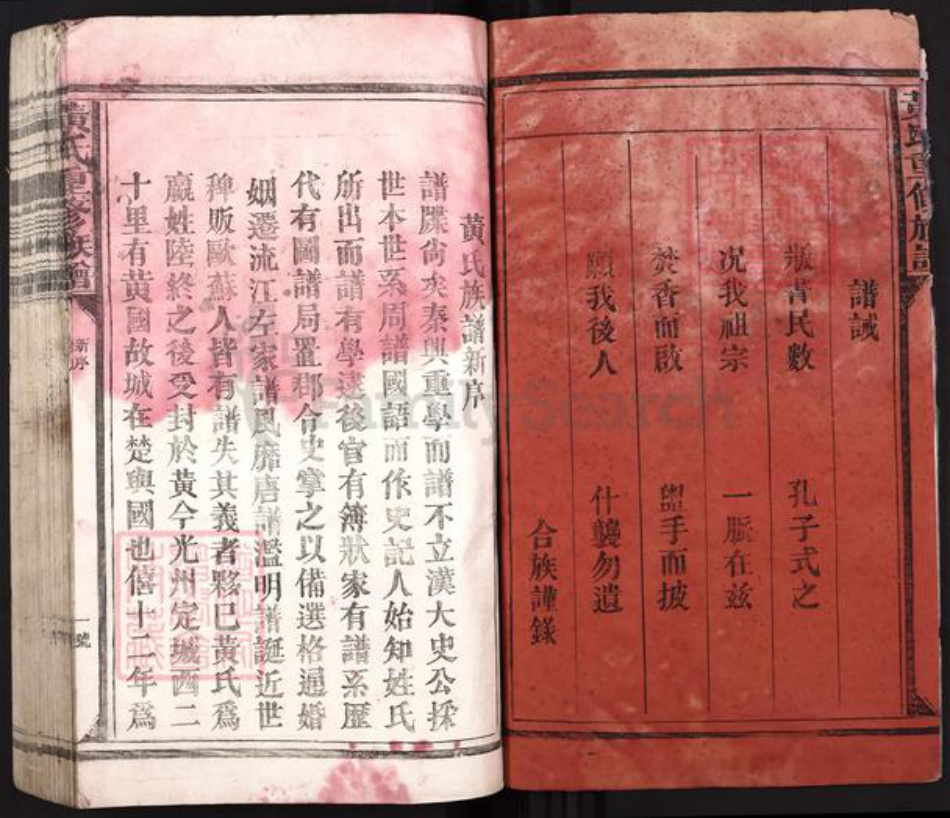 黃氏重修族譜
譜誡
版書民數 孔子式之
况我祖宗 一脈在兹
焚香而啟 盥手而披
願我後人 什襲勿遺
合族謹錄
黃氏族譜新序
譜牒尚矣秦興重學而譜不立漢大史公採
世本世系周譜國語而作史記人始知姓氏
所出而譜有學逮後官有簿狀家有譜系歷
代有圖譜局置郎令史掌之以備選格通婚
姻遷流江左家譜風靡唐譜濫明譜誕近世
稗販歐蘇人皆有譜失其義者夥已黃氏爲
嬴姓陸終之後受封於黃今光州定城西二
十里有黃國故城在楚與國也僖十二年爲
黃氏重修族譜
新序
一號
FamilySearch